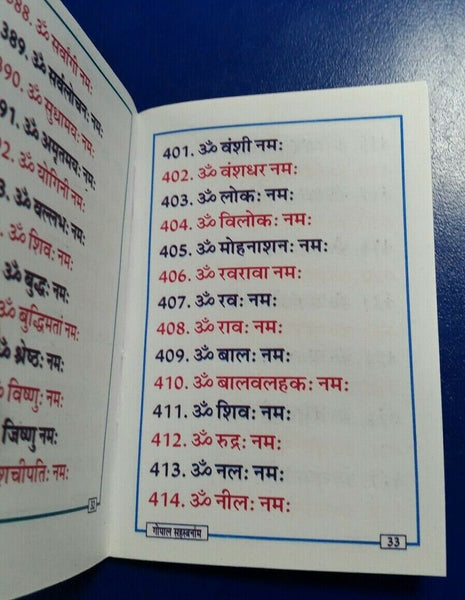 388. ॐ सर्वागी नमः
389. ॐ सर्वलोचनः नमः
390. ॐ सुधामयः नमः
91. ॐ अमृतमयः नमः
2. ॐ योगिनी नमः
ॐ वल्लभः नमः
ॐ शिवः नमः
ॐ बुद्धः नमः
ॐ बुद्धिमतां नमः
ॐ श्रेष्ठः नमः
विष्णुः नमः
जिष्णु नमः
शचीपतिः नमः
32
401. ॐ वंशी नमः
402. ॐ वंशधर नमः
403. ॐ लोकः नमः
404. ॐ विलोकः नमः
405. ॐ मोहनाशनः नमः
406. ॐ रवरावा नमः
407. ॐ रवः नमः
408. ॐ रावः नमः
409. ॐ बालः नमः
410. ॐ बालवलहकः नमः
411. ॐ शिवः नमः
412. ॐ रुद्रः नमः
413. ॐ नलः नमः
414. ॐ नीलः नमः
गोपाल सहस्त्रनाम
33